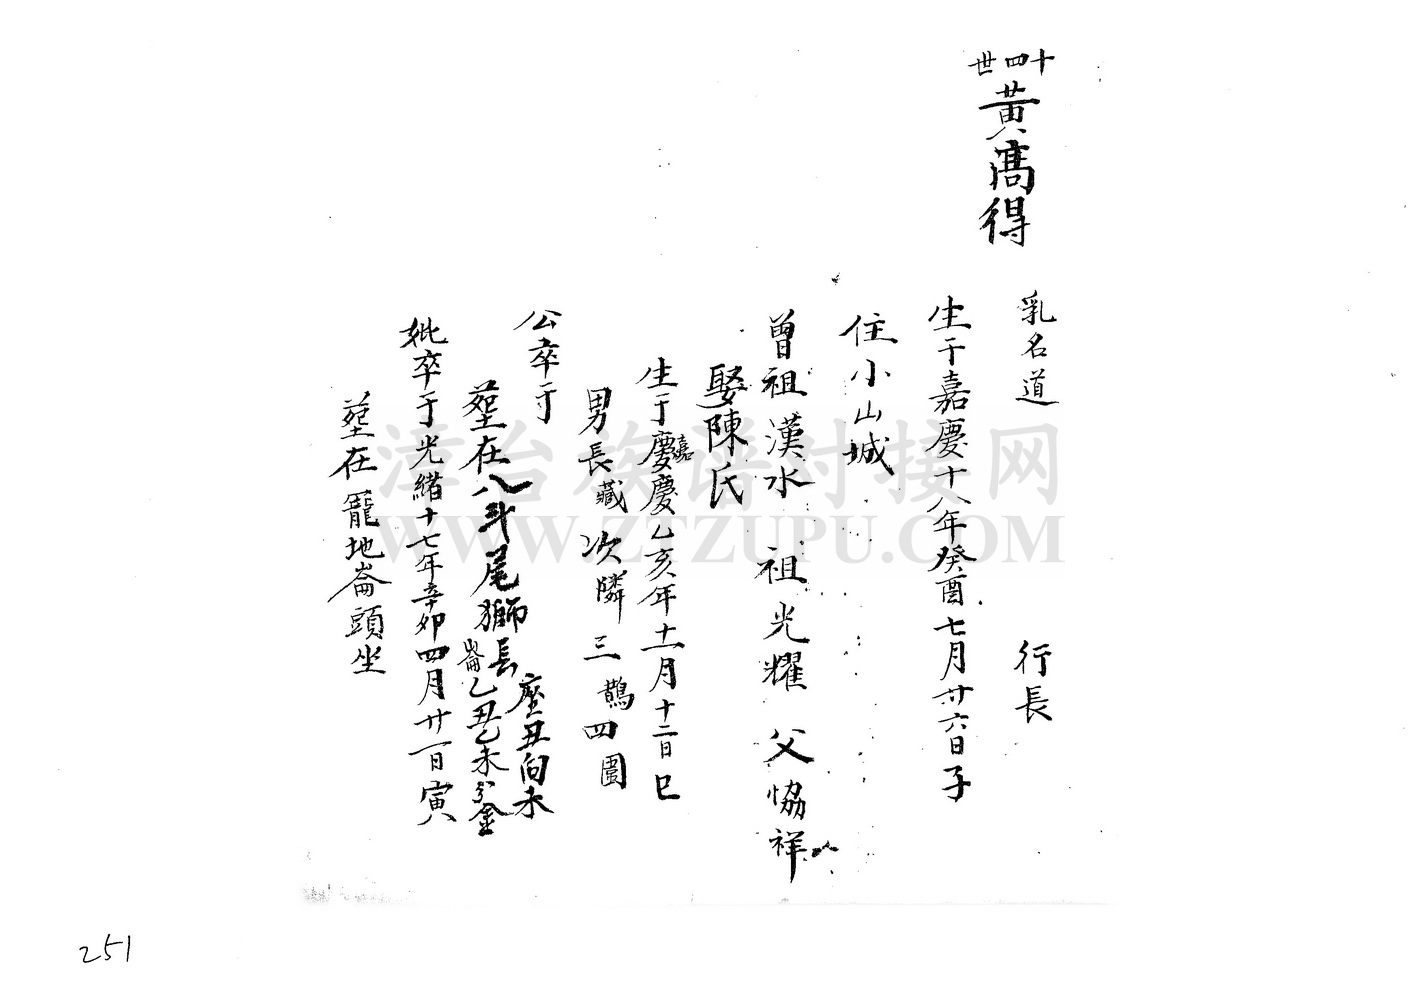 十四世
黃高得
乳名道 行長
生于嘉慶十八年癸酉七月廿六日子
住小山城
曾祖漢水 祖光耀 父恊祥
娶陳氏
生于嘉慶慶乙亥年十一月十二日巳
男長藏 次隣 三鵲 四園
公卒于
塟在八斗尾獅長崙乙丑乙未分金
座丑向未
妣卒于光緒十七年辛卯四月廿一日寅
塟在寵地崙頭坐
漳台族谱对接网
WWW.ZTZUPU.COM
251